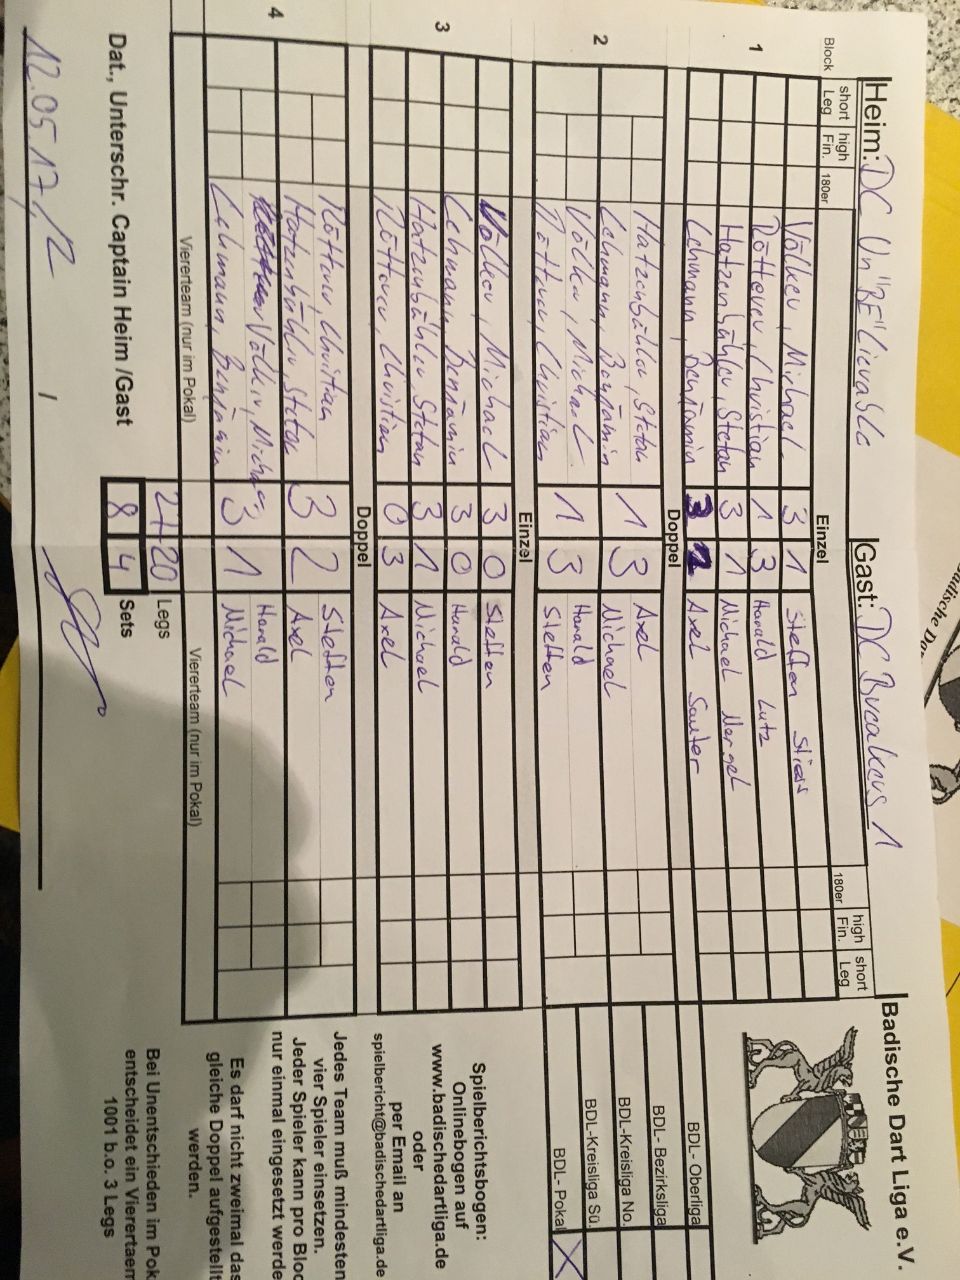 Heim: DC Un"BE"Lievable Gast: DC Breakers 1
Badische Dart Liga e.V.
Block short Leg high Fin. 180er Einzel 180er high Fin. short Leg
1
Völker, Michael 3 1 Steffen Stiess
Rötterer, Christian 1 3 Harald Lutz
Hatzenbühler, Stefan 3 1 Michael Mergel
Lehmann, Benjamin 3 2 Axel Sauter
Doppel
2
Hatzenbühler, Stefan 1 3 Axel
Lehmann, Benjamin Michael
Völker, Michael 1 3 Harald
Rötterer, Christian Steffen
Einzel
3
Völker, Michael 3 0 Steffen
Lehmann, Benjamin 3 0 Harald
Hatzenbühler, Stefan 3 1 Michael
Rötterer, Christian 0 3 Axel
Doppel
4
Rötterer, Christian 3 2 Steffen
Hatzenbühler, Stefan Axel
Völker, Michael 3 1 Harald
Lehmann, Benjamin Michael
Viererteam (nur im Pokal) Viererteam (nur im Pokal)
27 20 Legs
Dat., Unterschr. Captain Heim /Gast 8 4 Sets
12.05.17/
BDL- Oberliga
BDL- Bezirksliga
BDL-Kreisliga No.
BDL-Kreisliga Sü.
BDL- Pokal X
Spielberichtsbogen:
Onlinebogen auf
www.badischedartliga.de
oder
per Email an
spielbericht@badischedartliga.de
Jedes Team muß mindesten
vier Spieler einsetzen.
Jeder Spieler kann pro Bloc
nur einmal eingesetzt werde
Es darf nicht zweimal das
gleiche Doppel aufgestellt
werden.
Bei Unentschieden im Pok
entscheidet ein Viererteam
1001 b.o. 3 Legs